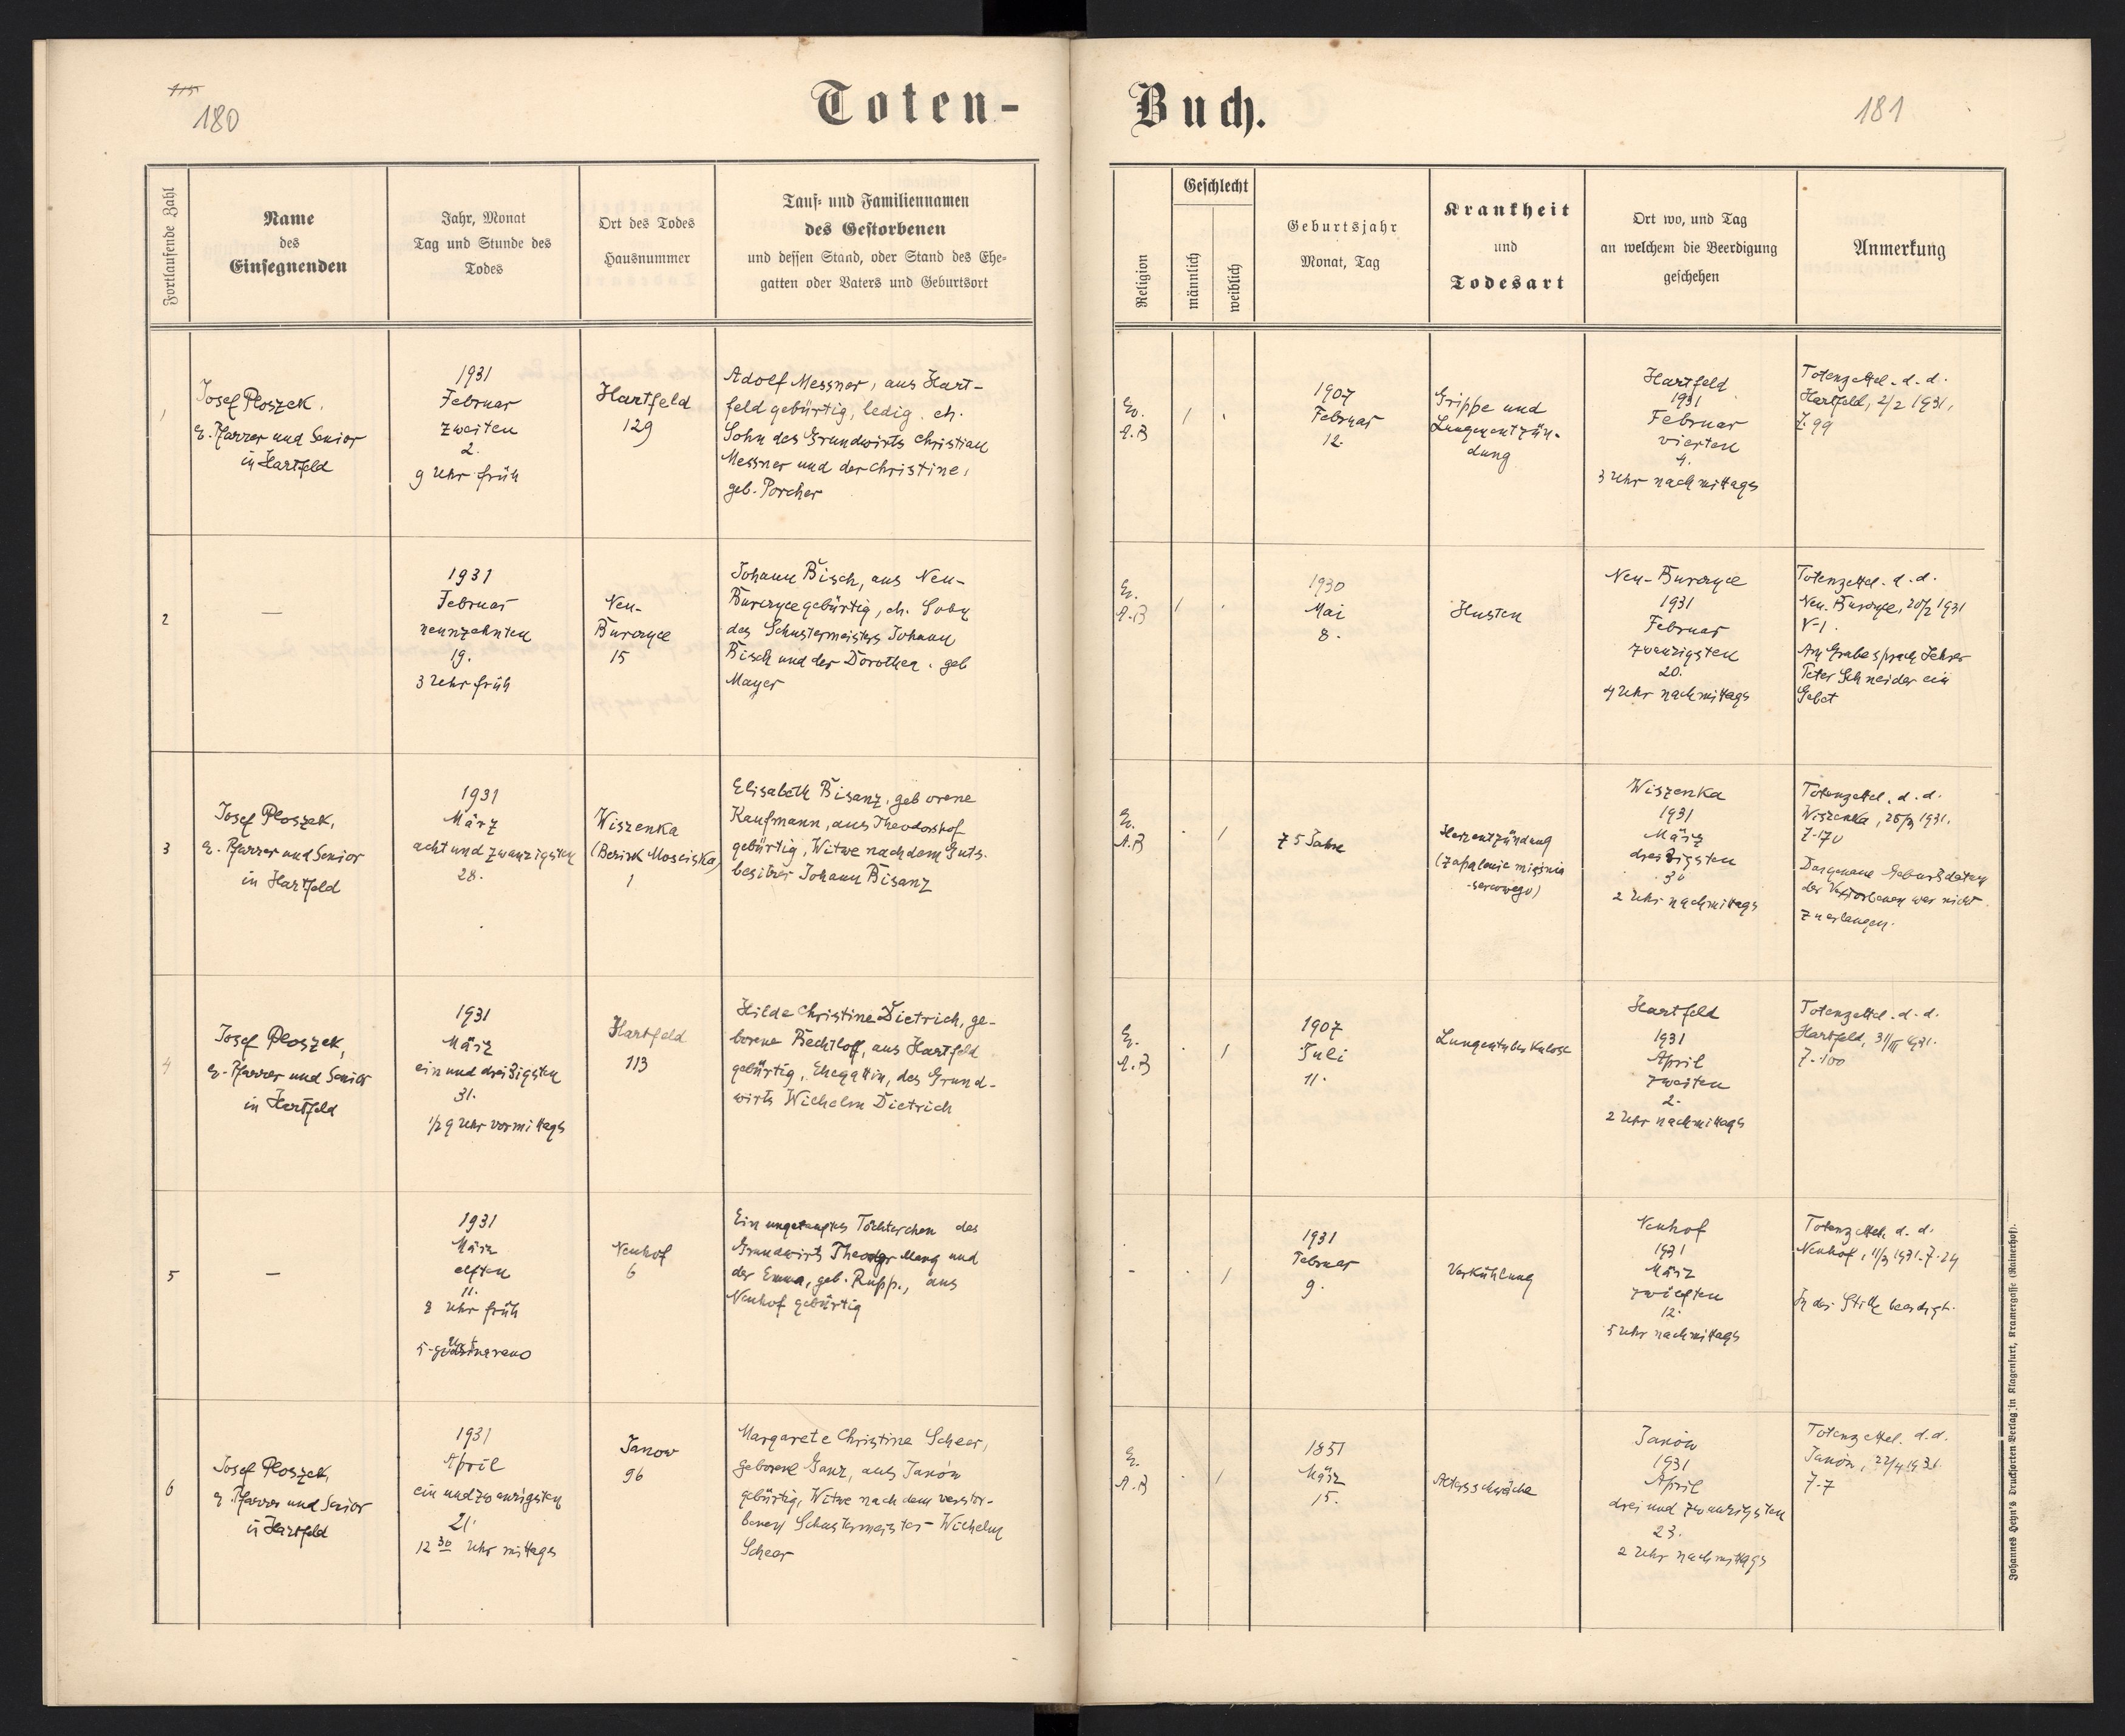 180
Toten-
Fortlaufende Zahl
Name
des
Einsegnenden
Jahr, Monat
Tag und Stunde des
Todes
Ort des Todes
Hausnummer
Tauf- und Familiennamen
des Gestorbenen
und dessen Stand, oder Stand des Ehe-
gatten oder Vaters und Geburtsort
1
Josef Ploszek,
e. Pfarrer und Senior
in Hartfeld
1931
Februar
zweiten
2.
9 Uhr früh
Hartfeld
129
Adolf Messner, aus Hart-
feld gebürtig, ledig. eh.
Sohn des Grundwirts Christian
Messner und der Christine,
geb. Porcher
2
—
1931
Februar
neunzehnten
19.
3 Uhr früh
Neu-
Burczyce
15
Johann Bisch, aus Neu-
Burczyce gebürtig, eh. Sohn
des Schustermeisters Johann
Bisch und der Dorothea, geb
Mayer
3
Josef Ploszek,
e. Pfarrer und Senior
in Hartfeld
1931
März
achtundzwanzigsten
28.
Wiszenka
(Bezirk Mosciska)
1
Elisabeth Bisanz, geborene
Kaufmann, aus Theodorshof
gebürtig, Witwe nach dem Guts-
besitzer Johann Bisanz
4
Josef Ploszek,
e. Pfarrer und Senior
in Hartfeld
1931
März
einunddreißigsten
31.
1/2 9 Uhr vormittags
Hartfeld
113
Hilde Christine Dietrich, ge-
borene Bechtloff, aus Hartfeld
gebürtig, Ehegattin, des Grund-
wirts Wilhelm Dietrich
5
—
1931
März
elften
11.
8 Uhr früh
Neuhof
6
Ein ungetauftes Töchterchen des
Grundwirts Theodor Mang und
der Emma, geb. Rupp., aus
Neuhof gebürtig
6
Josef Ploszek,
e. Pfarrer und Senior
in Hartfeld
1931
April
einundzwanzigsten
21.
12 30 Uhr mittags
Janow
96
Margarete Christine Scheer,
geborene Ganz, aus Janów
gebürtig, Witwe nach dem verstor-
benen Schustermeister Wilhelm
Scheer
Buch.
181
Religion
Geschlecht
männlich
weiblich
Geburtsjahr
Monat, Tag
Krankheit
und
Todesart
Ort wo, und Tag
an welchem die Beerdigung
geschehen
Anmerkung
Ev.
A.B
1
1907
Februar
12.
Grippe und
Lungenentzün-
dung
Hartfeld
1931
Februar
vierten
4.
3 Uhr nachmittags
Totenzettel. d. d.
Hartfeld, 2/2 1931,
Z. 99
Ev.
A.B
1
1930
Mai
8.
Husten
Neu-Burczyce
1931
Februar
zwanzigsten
20.
4 Uhr nachmittags
Totenzettel. d. d.
Neu. Burczyce, 20/2 1931
N-1.
Am Grabe sprach Lehrer
Peter Schneider ein
Gebet
Ev.
A.B
1
75 Jahre
Herzentzündung
(zapalenie mięśnia
sercowego)
Wiszenka
1931
März
dreißigsten
30
2 Uhr nachmittags
Totenzettel. d. d.
Wiszenka, 28/3 1931.
Z-170
Das genaue Geburtsdatum
der Verstorbenen war nicht
zu erlangen.
Ev.
A.B
1
1907
Juli
11.
Lungentuberkulose
Hartfeld
1931
April
zweiten
2.
2 Uhr nachmittags
Totenzettel. d. d.
Hartfeld, 31/III 1931.
Z. 100
-
1
1931
Februar
9.
Verkühlung
Neuhof
1931
März
zwölften
12.
5 Uhr nachmittags
Totenzettel. d. d.
Neuhof, 11/3 1931. Z. 24
In der Stille beerdigt.
Ev.
A.B
1
1851
März
15.
Altersschwäche
Janów
1931
April
dreiundzwanzigsten
23.
2 Uhr nachmittags
Totenzettel. d. d.
Janów, 22/4 1931.
Z-7
Johannes Heyn's Drucksorten Verlag in Klagenfurt, Kramergasse (Rainerhof).